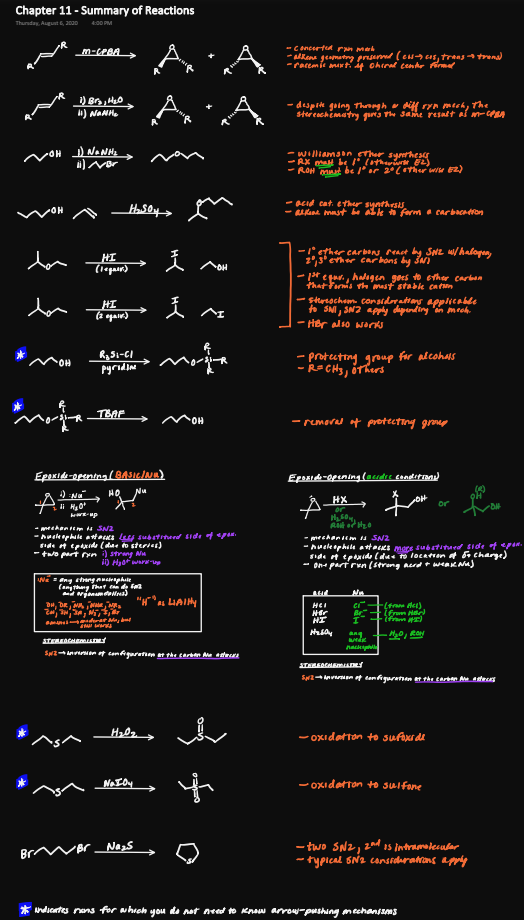 Chapter 11 - Summary of Reactions
Thursday, August 6, 2020 4:00 PM
R R m-CPBA O R R + O R R
- concerted rxn mech
- alkene geometry preserved (cis → cis, trans → trans)
- racemic mixt. if chiral center formed
R R i) Br2, H2O O R R + O R R
ii) NaNH2
- despite going through a diff rxn mech, the
stereochemistry gives the same result as m-CPBA
OH i) NaNH2 O
ii) Br
- Williamson ether synthesis
- RX must be 1° (otherwise E2)
- ROH must be 1° or 2° (otherwise E2)
OH H2SO4 O
- acid cat. ether synthesis
- alkene must be able to form a carbocation
O HI I OH
(1 equiv.)
O HI I I
(2 equiv.)
- 1° ether carbons react by SN2 w/halogen,
2°,3° ether carbons by SN1
- 1st equv., halogen goes to ether carbon
that forms the most stable cation
- stereochem considerations applicable
to SN1, SN2 apply depending on mech.
- HBr also works
* OH R3Si-Cl O Si R R R
pyridine
- protecting group for alcohols
- R = CH3, others
* O Si R R R TBAF OH
- removal of protecting group
Epoxide-opening (BASIC/Nu)
O 1 2 i) :Nu- HO Nu 1 2
ii H3O+
work-up
- mechanism is SN2
- nucleophile attacks less substitued side of epox.
side of epoxide (due to sterics)
- two part rxn i) strong Nu
ii) H3O+ work-up
:Nu- = any strong nucleophile
(anything that can do SN2
and organometallics)
"H-" is LiAlH4
STEREOCHEMISTRY
SN2 → inversion of configuration at the carbon Nu attacks
Epoxide-opening (acidic conditions)
O HX X OH or (R) OH OH
or
H2SO4,
ROH or H2O
- mechanism is SN2
- nucleophile attacks more substitued side of epox.
side of epoxide (due to location of δ+ charge)
- one part rxn (strong acid + weak Nu)
acid Nu
HCl Cl- (from HCl)
HBr Br- (from HBr)
HI I- (from HI)
H2SO4 any H2O, ROH
weak
nucleophile
STEREOCHEMISTRY
SN2 → inversion of configuration at the carbon Nu attacks
* S H2O2 O S
- oxidation to sufoxide
* S NaIO4 O S O
- oxidation to sulfone
Br Br Na2S S
- two SN2, 2nd is intramolecular
- typical SN2 considerations apply
* indicates rxns for which you do not need to know arrow-pushing mechanisms